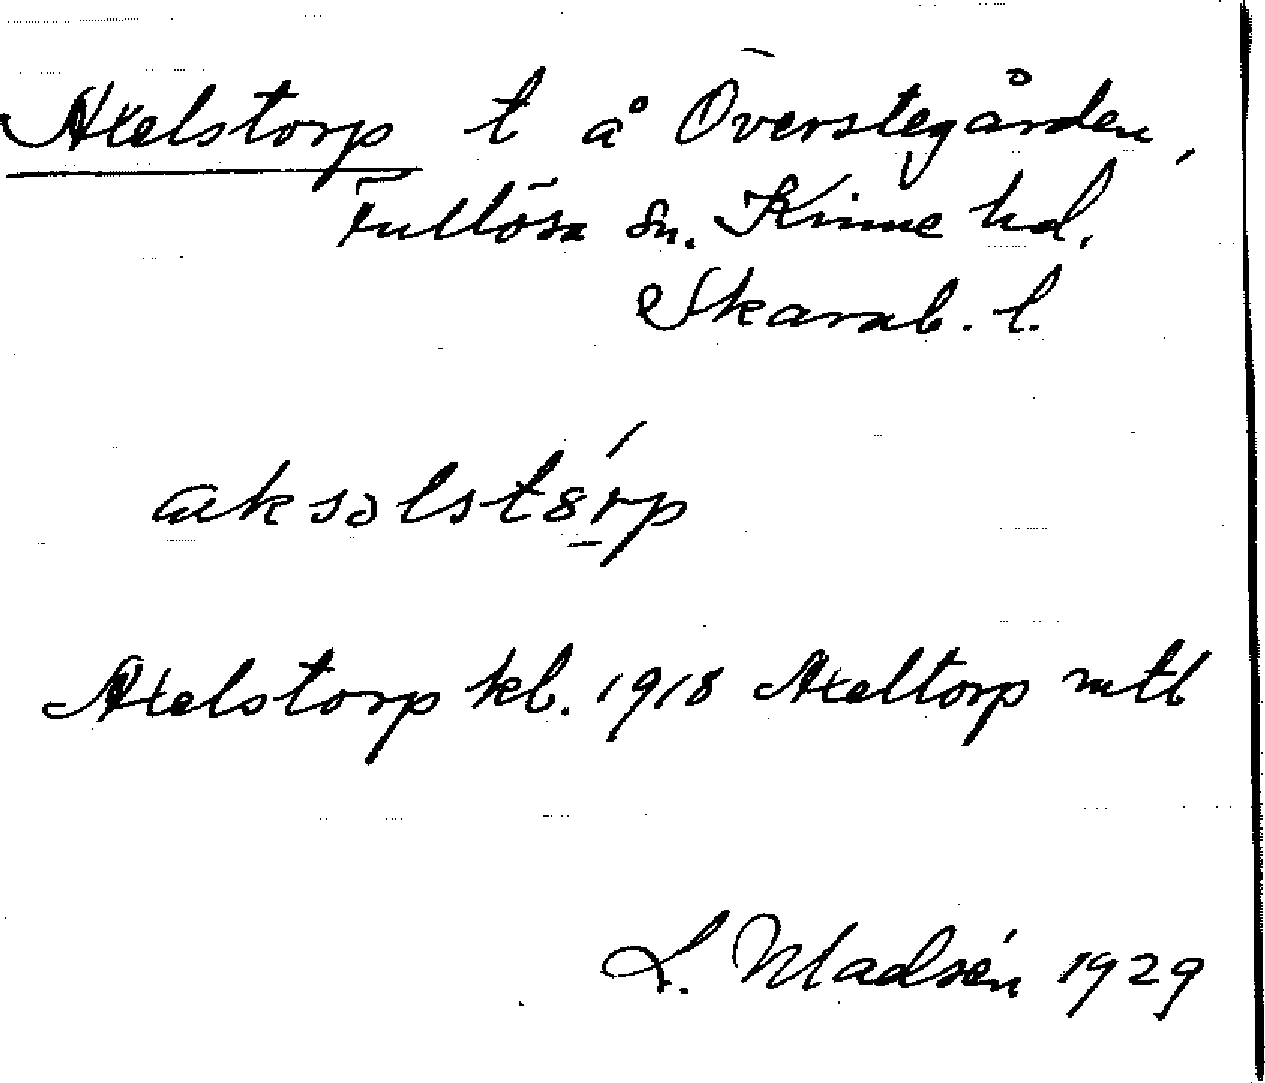 Axelstorp t å Överstegården,
Fullösa sn. Kinne hd.
Skarab. l.
aksəlstȣ́rp
Axelstorp kb. 1918 Axeltorp mtb
L. Madsén 1929